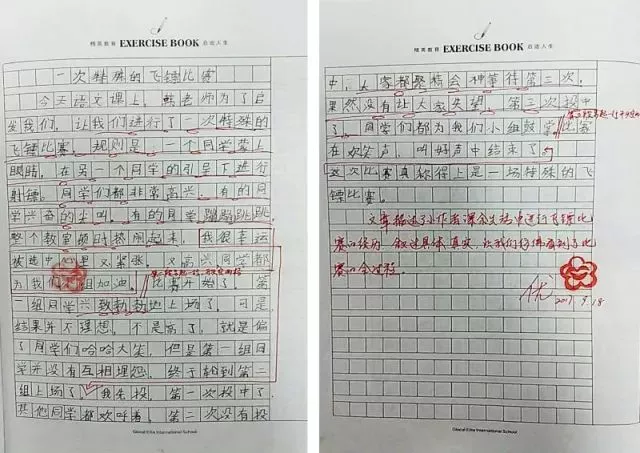 精英教育 EXERCISE BOOK 启迪人生
一次特殊的飞镖比赛
今天语文课上，熊老师为了启
发我们，让我们进行了一次特殊的
飞镖比赛。规则是：一个同学蒙上
眼睛，在另一个同学的引导下进行
射镖。同学们都非常高兴，有的同
学兴奋的尖叫，有的同学蹦蹦跳跳，
整个教室顿时热闹起来。我很幸运
被选中，心里又紧张，又高兴，同学都
为我们组加油。比赛开始了，第
一组同学兴致勃勃地上场了，可是
结果并不理想，不是高了，就是偏
了，同学们哈哈大笑，但是第一组同
学并没有互相埋怨。终于轮到第二
组上场了，我先投，第一次投中了，
其他同学都欢呼着，第二次没有投
Global Elite International School
精英教育 EXERCISE BOOK 启迪人生
中，大家都聚精会神等待第三次，
果然没有让大家失望，第三次投中
了，同学们都为我们小组鼓掌，比赛
在欢笑声，叫好声中结束了。
这次比赛真称得上是一场特殊的飞
镖比赛。
文章描述了小作者课余生活中进行飞镖比
赛的经历，叙述具体、真实，让我们仿佛看到了比
赛的全过程。
优
2017.9.18
Global Elite International School